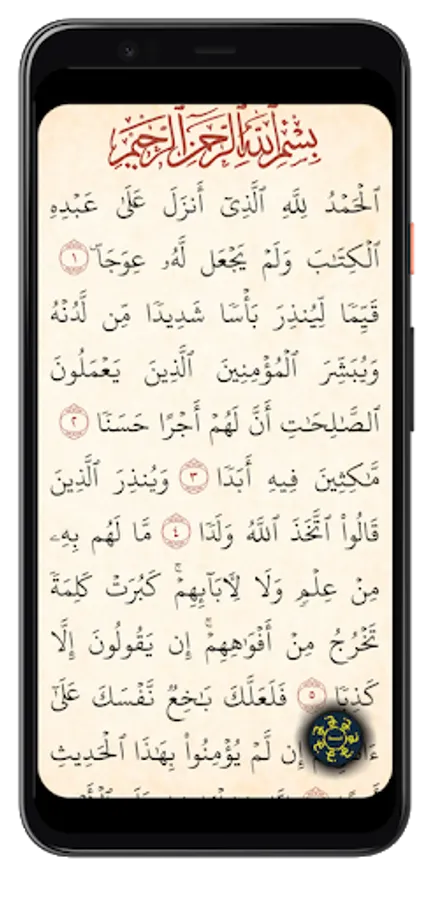 بِسْمِ ٱللَّهِ ٱلرَّحْمَٰنِ ٱلرَّحِيمِ
ٱلْحَمْدُ لِلَّهِ ٱلَّذِىٓ أَنزَلَ عَلَىٰ عَبْدِهِ
ٱلْكِتَٰبَ وَلَمْ يَجْعَل لَّهُۥ عِوَجَاۜ ١
قَيِّمًا لِّيُنذِرَ بَأْسًا شَدِيدًا مِّن لَّدُنْهُ
وَيُبَشِّرَ ٱلْمُؤْمِنِينَ ٱلَّذِينَ يَعْمَلُونَ
ٱلصَّٰلِحَٰتِ أَنَّ لَهُمْ أَجْرًا حَسَنًا ٢
مَّٰكِثِينَ فِيهِ أَبَدًا ٣ وَيُنذِرَ ٱلَّذِينَ
قَالُوا۟ ٱتَّخَذَ ٱللَّهُ وَلَدًا ٤ مَّا لَهُم بِهِۦ
مِنْ عِلْمٍ وَلَا لِءَابَآئِهِمْ ۚ كَبُرَتْ كَلِمَةً
تَخْرُجُ مِنْ أَفْوَٰهِهِمْ ۚ إِن يَقُولُونَ إِلَّا
كَذِبًا ٥ فَلَعَلَّكَ بَٰخِعٌ نَّفْسَكَ عَلَىٰٓ
إِن لَّمْ يُؤْمِنُوا۟ بِهَٰذَا ٱلْحَدِيثِ